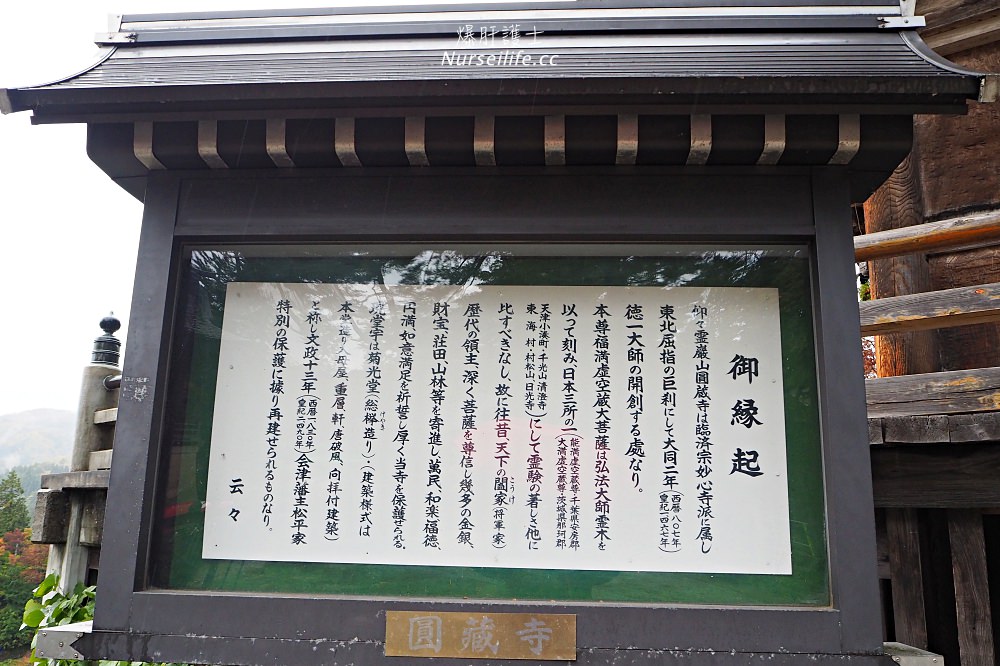 爆肝護士
Nurseilife.cc
御縁起
仰々霊巖山圓蔵寺は臨済宗妙心寺派に属し
東北屈指の巨利にして大同二年(西暦 八〇七年)(皇紀一四六七年)
徳一大師の開創する處なり。
本尊福満虚空蔵大菩薩は弘法大師霊木を
以って刻み、日本三所の一(能満虚空蔵尊・千葉県安房郡)(大満虚空蔵尊・茨城県那珂郡)
天津小湊町・千光山・清澄寺)東海村・村松山、日光寺)にして霊験の著しき他に
比すべきなし、故に往昔、天下の閤家(将軍家)
こうけ
歴代の領主、深く菩薩を尊信し幾多の金銀、
財宝、荘田、山林等を寄進し、萬民、和楽福徳、
円満、如意満足を祈誓し厚く当寺を保護せらる。
堂宇は菊光堂(総欅造り)∴建築様式は
けやき
本堂造り 母屋、重層、軒唐破風、向拝付建築)
と称し文政十三年(西暦一八三〇年)(皇紀二四九〇年)会津藩主松平家
特別の保護に據り再建せられるものなり。
云々
圓藏寺